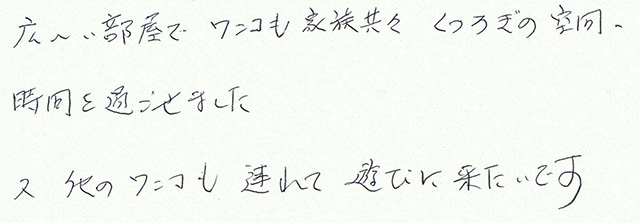 広〜い部屋で ワンコも 家族共々 くつろぎの 空間、
時間を過ごせました
又 他の ワンコも 連れて 遊びに 来たいです